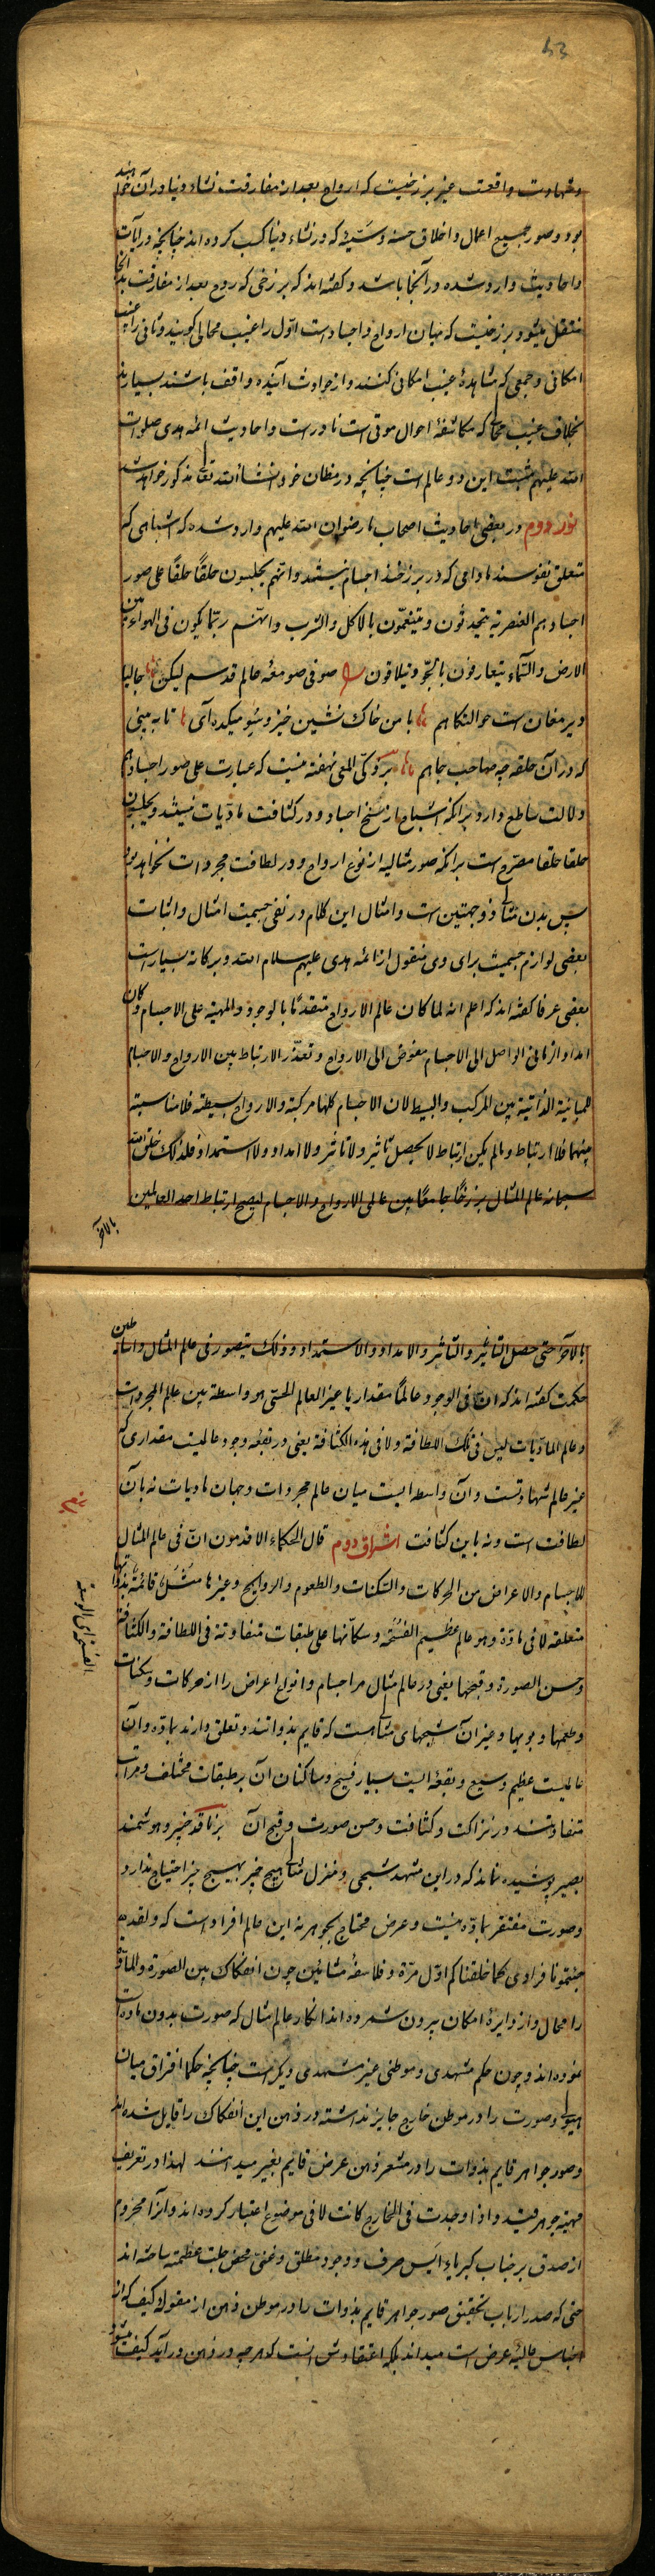 53
وشهادت واقعت غیر برزخیست که ارواح بعد از مفارقت نشاء دنیا در آن خواهند
بود وصور جمیع اعمال واخلاق حسنه وسیّئه که در نشاء دنیا کسب کرده اند چنانچه در آیات
واحادیث وارد شده در آنجا باشد وگفته اند که برزخی که روح بعد از مفارقت بدانجا
منتقل میشود برزخیست که میان ارواح واجسادست اوّل را غیب محالی گویند وثانی را غیب
امکانی وجمعی که مشاهدهٔ غیب امکانی کنند واز حوادث آینده واقف باشند بسیارند
بخلاف غیب محالی که مکاشفهٔ احوال موتی است نادرست واحادیث ائمه هدی صلوات
الله علیهم مثبت این دو عالم است چنانچه در مظان خود انشاء الله تعالی مذکور خواهد شد
نور دوم در بعضی احادیث اصحاب ما رضوان الله علیهم وارد شده که اشباهی که
متعلق نفوسند مادامی که در برزخند اجسام نیستند وانهم یجلسون حلقًا حلقًا علی صور
اجسادهم العنصریه یتحدثون ویتنعّمون بالاکل والشرب وانّهم ربّما یکون فی الهواء بین
الارض والسّماء یتعارفون بالجوّ ویتلاقون صوفی صومعهٔ عالم قدسم لیکن حالیا
دیر مغان است حوالتگاهم با من خاک نشین خیز وسوی میکده آی تا ببینی
که در آن حلقه چه صاحب جاهم بر ذکی المعی نهفته نیست که عبارت علی صور اجسادهم
دلالت ساطع دارد برآنکه اشباح از سنخ اجساد ودر کثافت مادّیات نیستند ویجلسون
حلقا حلقا مصرّح است برآنکه صور مثالیه از نوع ارواح ودر لطافت مجردات نخواهد بود
پس بدن مثالی ذو جهتین است وامثال این کلام در نفی جسمیت امثال واثبات
بعضی لوازم جسمیت برای وی منقول از ائمه هدی علیهم سلام الله وبرکاته بسیار است
بعضی عرفا گفته اند که اعلم انه لما کان عالم الارواح متقدمًا بالوجود والمرتبة علی الاجسام وکان
امداد الربانی الواصل الی الاجسام مفوض الی الارواح وتعذّر الارتباط بین الارواح والاجسام
للمباینة الذاتیة بین المرکب والبسیط لان الاجسام کلها مرکبة والارواح بسیطة فلا مناسبة
بینهما فلا ارتباط وما لم یکن ارتباط لا یحصل تاثیر ولا تاثر ولا امداد ولا استمداد فلذلک خلق الله
سبحانه عالم المثال برزخًا جامعًا بین عالمی الارواح والاجسام لیصح ارتباط احد العالمین
بالآخر
بالآخر حتی حصل التاثیر والتاثر والامداد والاستمداد وذلک یتصور فی عالم المثال واساطین
حکمت گفته اند که انّ فی الوجود عالمًا مقداریا غیر العالم الحسّی هو واسطة بین عالم المجردات
وعالم المادّیات لیس فی تلک اللطافة ولا فی هذه الکثافة یعنی در بقعهٔ وجود عالمیست مقداری که
غیر عالم شهادتست وآن واسطه ایست میان عالم مجردات وجهان مادیات نه بآن
لطافت است ونه باین کثافت اشراق دوم قال الحکماء الاقدمون انّ فی عالم المثال
للاجسام والاعراض من الحرکات والسکنات والطعوم والروایح وغیرها مُثُل قائمة بذواتها
متعلقة لا فی مادّة وهو عالم عظیم الفسحة وسکّانها علی طبقات متفاوتة فی اللطافة والکثافة
وحسن الصورة وقبحها یعنی در عالم مثال مر اجسام وانواع اعراض را از حرکات وسکنات
وطعمها وبویها وغیر آن شبحهای مثالیست که قایم بذواتند وتعلق دارند بمادّه وآن
عالمیست عظیم وسیع وبقعه ایست بسیار فسیح وساکنان آن بر طبقات مختلف ومراتب
متفاوتند در نزاکت وکثافت وحسن صورت وقبح آن بر ناقد خبیر وهوشمند
بصیر پوشیده نماند که در این مشهد شبحی ومنزل مثالی هیچ چیز بهیچ چیز احتیاج ندارد
وصورت مفتقر بمادّه نیست وعرض محتاج بجوهر نه این عالم افراد است که ولقد
جئتمونا فرادی کما خلقناکم اوّل مرّة وفلاسفهٔ مشائین چون انفکاک بین الصورة والمادّة
را محال واز دایرهٔ امکان بیرون شمرده اند انکار عالم مثال که صورت بدون ماده است
نموده اند وچون حکم مشهدی وموطنی غیر مشهدی دیگر است چنانچه حکما افتراق میان
هیولی وصورت را در موطن خارج جایز نداشته در ذهن این انفکاک را قایل شده اند
وصور جواهر قایم بذوات را در مشعر ذهن عرض قایم بغیر میدانند لهذا در تعریف
مهیّت جوهر قید واذا وجدت فی الخارج کانت لا فی موضوع اعتبار کرده اند وآنرا محروم
از صدق بر جناب کبریاء ایس صرف ووجود مطلق وغنی محض جلّت عظمته ساخته اند
حتی که صدر ارباب تحقیق صور جواهر قایم بذوات را در موطن ذهن از مقولهٔ کیف که از
اجناس عالیهٔ عرض است میداند بلکه اعتقادش آنست که هر چه در ذهن در آید کیف میشود
الفسحة ای الوسعة